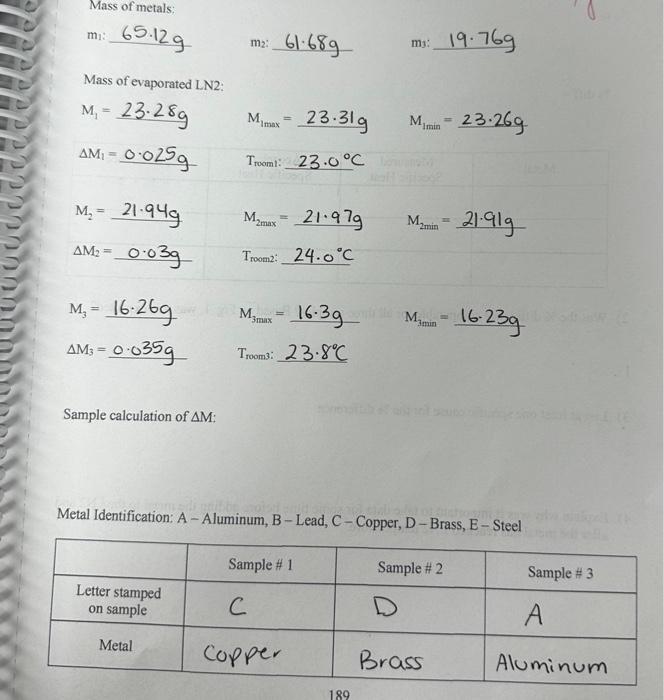 Mass of metals:
m₁: 65.12g m₂: 61.68g m₃: 19.76g
Mass of evaporated LN2:
M₁ = 23.28g M₁max = 23.31g M₁min = 23.26g
ΔM₁ = 0.025g Troom1: 23.0°C
M₂ = 21.94g M₂max = 21.97g M₂min = 21.91g
ΔM₂ = 0.03g Troom2: 24.0°C
M₃ = 16.26g M₃max = 16.3g M₃min = 16.23g
ΔM₃ = 0.035g Troom3: 23.8°C
Sample calculation of ΔM:
Metal Identification: A – Aluminum, B – Lead, C – Copper, D – Brass, E – Steel
Sample # 1 Sample # 2 Sample # 3
Letter stamped
on sample C D A
Metal Copper Brass Aluminum
189